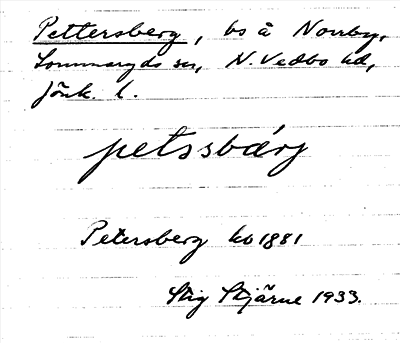 Pettersberg, bs å Norrby,
Lommaryds sn, N. Vedbo hd,
Jönk. l.
petssbärj
Petersberg ko 1881
Stig Stjärne 1933.